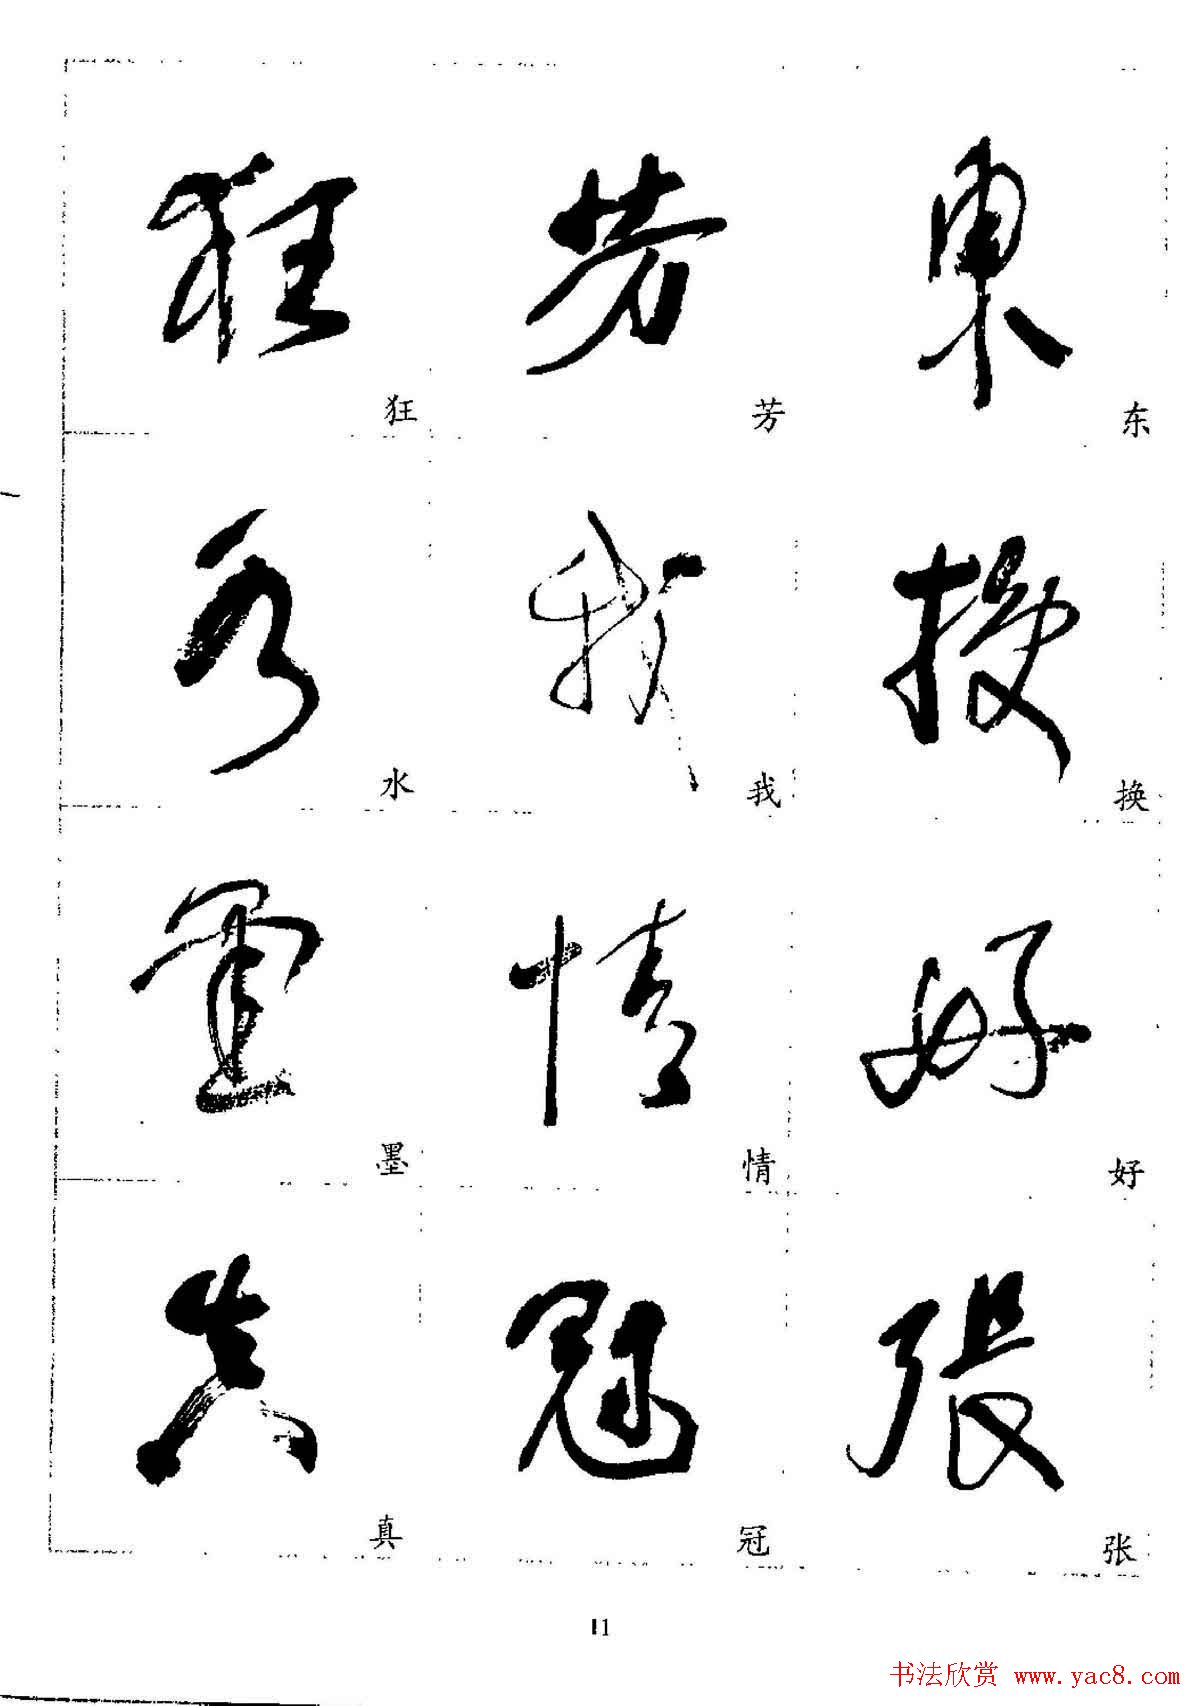 狂 芳 東
狂 芳 东
水 我 换
水 我 换
墨 情 好
墨 情 好
真 冠 張
真 冠 张
11
书法欣赏 www.yac8.com